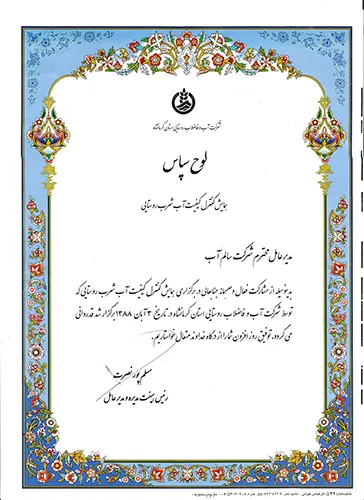 شرکت آب و فاضلاب روستایی استان کرمانشاه
لوح سپاس
همایش کنترل کیفیت آب شرب روستایی
مدیر عامل محترم شرکت سالم آب
بدینوسیله از مشارکت فعال و صمیمانه جنابعالی در برگزاری همایش کنترل کیفیت آب شرب روستایی که
توسط شرکت آب و فاضلاب روستایی استان کرمانشاه در تاریخ ۳ آبان ۱۳۸۸ برگزار شد قدردانی
می گردد. توفیق روز افزون شما را از درگاه خداوند متعال خواستاریم.
مسلم پور نصرت
رئیس هیئت مدیره و مدیر عامل